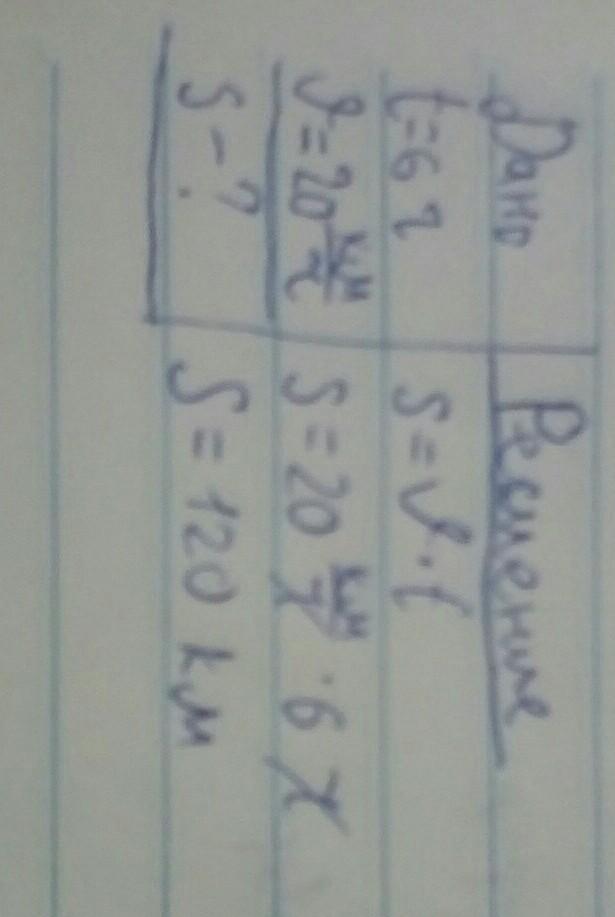 Дано
t=6 ч
υ=20 км/ч
S-?
Решение
S=υ·t
S=20 км/ч·6 ч
S=120 км